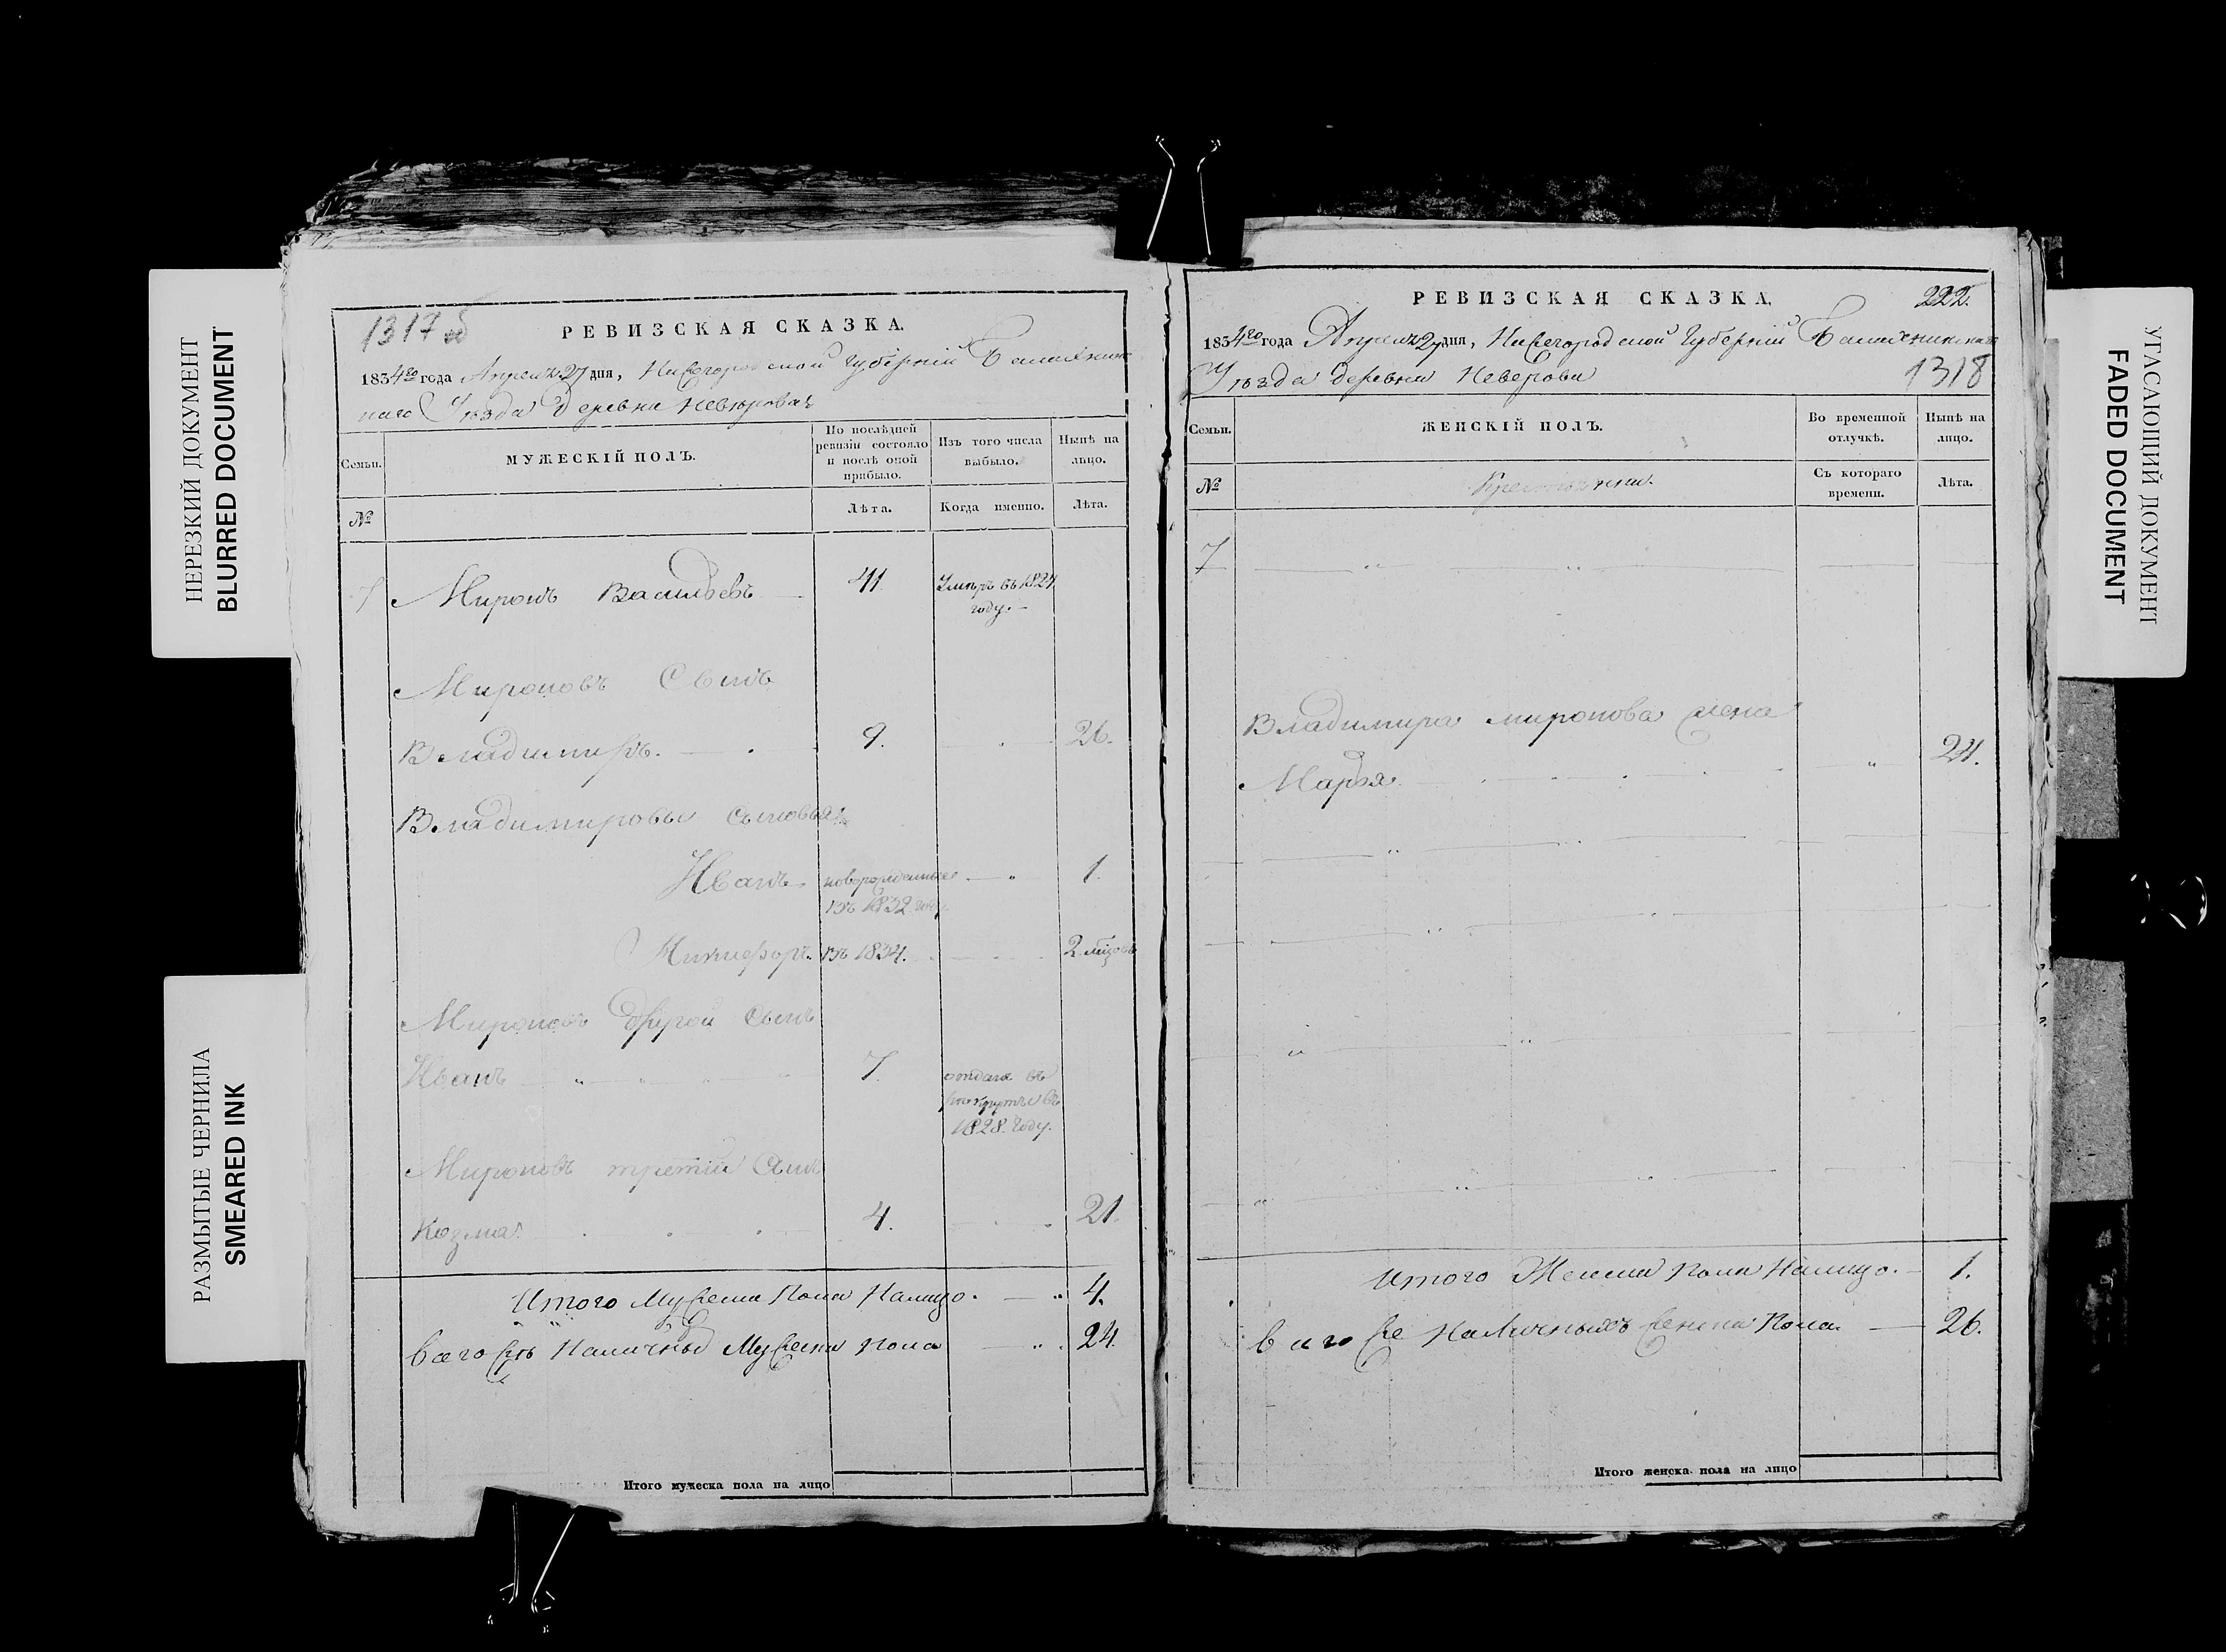 НЕРЕЗКИЙ ДОКУМЕНТ
BLURRED DOCUMENT
РАЗМЫТЫЕ ЧЕРНИЛА
SMEARED INK
1317 об
РЕВИЗСКАЯ СКАЗКА.
1834го года Апреля 27 дня, Нижегородской Губерніи
Уѣзда Деревни
Семьи.
МУЖЕСКІЙ ПОЛЪ.
По послѣдней ревизіи состояло и послѣ оной прибыло.
Изъ того числа выбыло.
Нынѣ на лицо.
№
Лѣта.
Когда именно.
Лѣта.
7 Миронъ Васильевъ 41 Умеръ въ 1824
году.
Мироновъ Сынъ
Владимиръ. 9. 26.
Владимировы сыновья
Иванъ новорожденные 1.
въ 1832 году
Никифоръ. въ 1834. 2 мѣсяцовъ
Мироновъ другой сынъ
Иванъ 7. отданъ въ
рекруты въ
1828. году.
Мироновъ третій сынъ
Козма 4. 21.
Итого Мужеска Пола Налицо. 4.
Всего Наличныхъ Мужеска пола 24.
Итого мужеска пола на лицо
РЕВИЗСКАЯ СКАЗКА.
222.
1834го года Апреля 27 дня, Нижегородской Губерніи
Уѣзда деревни Неверови
1318
Семьи.
ЖЕНСКІЙ ПОЛЪ.
Во временной отлучкѣ.
Нынѣ на лицо.
№
Съ котораго времени.
Лѣта.
7
Владимира миронова жена
Марья 24.
Итого Женска пола Налицо. 1.
Всего Наличныхъ женска Пола. 26.
Итого женска пола на лицо
УГАСАЮЩИЙ ДОКУМЕНТ
FADED DOCUMENT